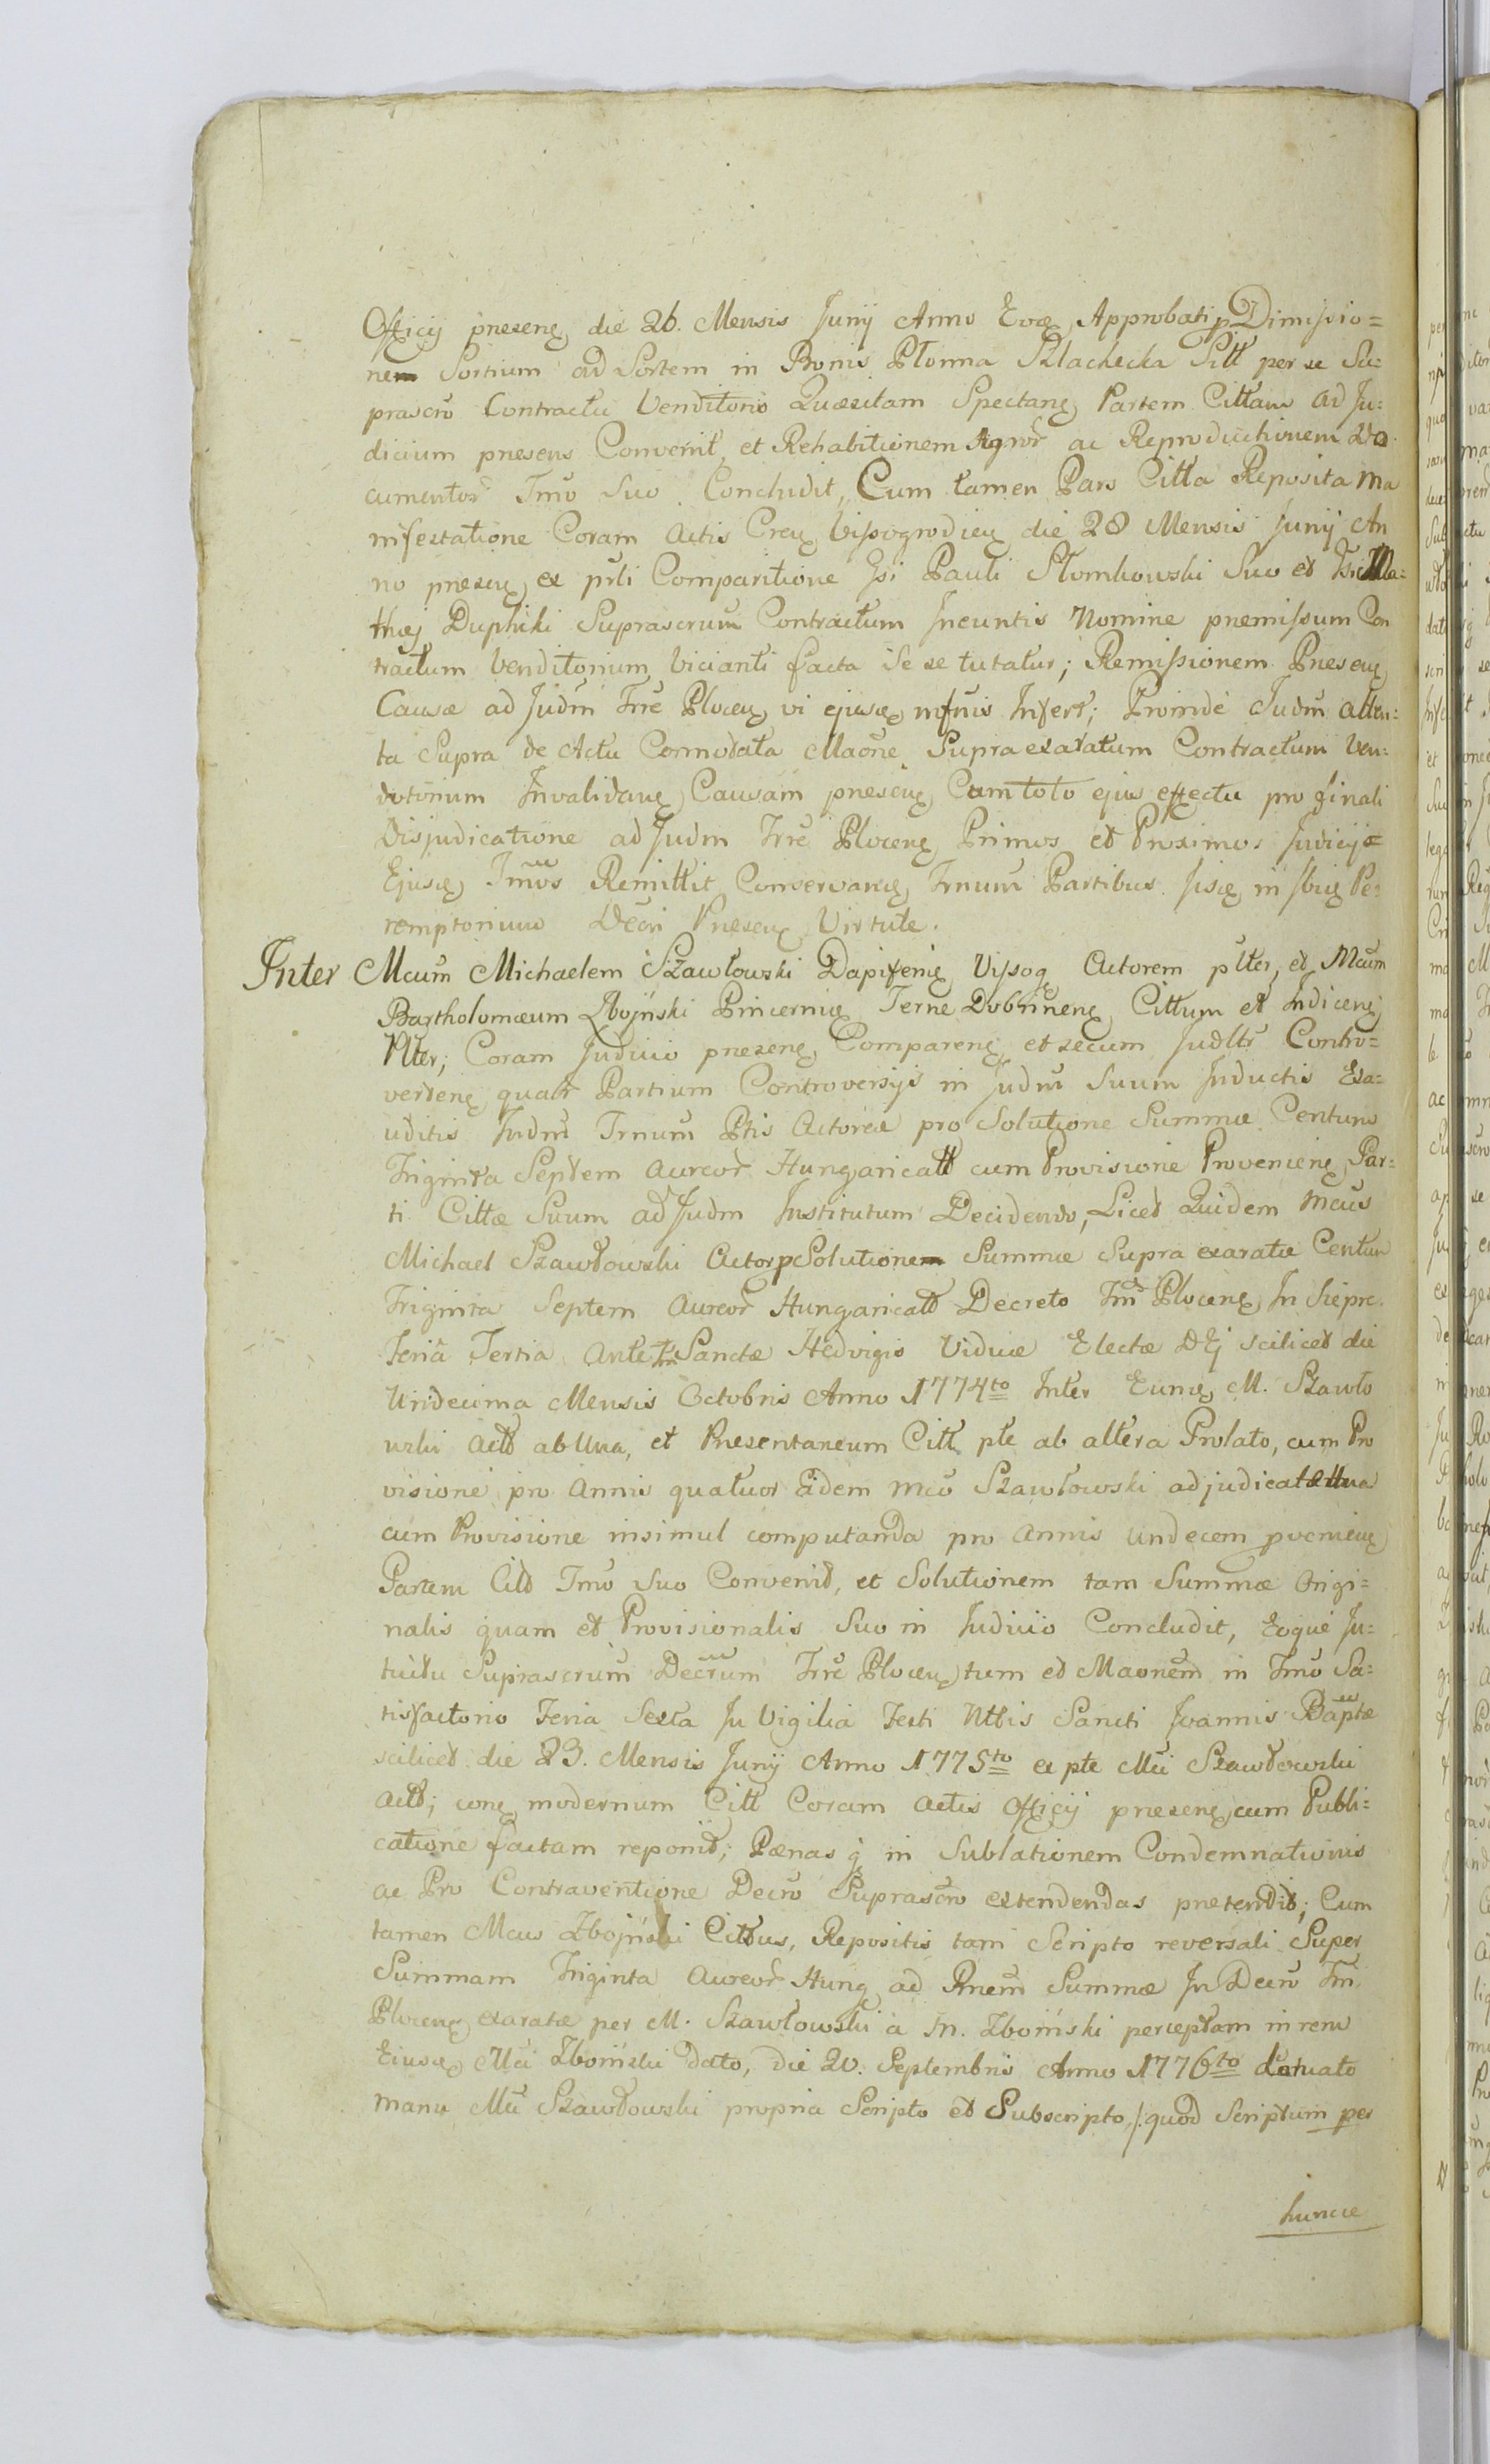 Officij præsenę die 26. Mensis Junij Anno Eoę Approbati p Dimissio=
nem Sortium ad Sortem in Bonis Płonna Szlachecka Sitt per se Su=
prascro Contractu Venditorio Quæsitam Spectanę Partem Cittam ad Ju=
dicium præsens Convenit, et Rehabitionem ac Reproductionem Do
cumentor Tmo Suo Concludit, Cum tamen Pars Citta Reposita Ma
nifestatione Coram Actis Creę Vissogrodieę die 28 Mensis Junij An
no præseę ex prli Comparitione Gsi Pauli Słomkowski Suo et Gsi Ma=
thæj Duplicki Suprascrum Contractum Ineuntis Nomine præmissum Con
tractum Venditorium Vicianti facta Se se tutatur; Remissionem Præseę
Causæ ad Judm Trre Ploceę vi ejusę mfnis Infert; Proinde Judm atten=
ta Supra de Actu Connotata Maone Supra exaratum Contractum Ven=
ditorium Invalidanę Causam præsenę Cum toto ejus effectu pro finali
Disjudicatione ad Judm Trre Plocenę Primos et Proximos Judicijs
Ejusę Tmos Remittit Conservanę Trnum Partibus Jisę in Ibię Pe=
remptorium Decri Præseę Virtute.
Inter Mcum Michaelem Szawłowski Dapiferię Vissog Actorem plter, et Mcum
Bartholomæum Zbojński Pincernię Terræ Dobrinenę Cittum et Indicenę
Plter; Coram Judicio præsenę Comparenę et secum Judltr Contro=
vertenę quar Partium Controversijs in Judm Suum Inductis Exa=
uditis Judm Trnum Ptis Actoreæ pro Solutione Summæ Centum
Triginta Septem Aureor Hungaricalt cum Provisione Provenienę Par=
ti Cittæ Suum ad Judm Institutum Decidendo, Licet Quidem Mcus
Michael Szawłowski Actor p Solutionem Summæ Supra exaratæ Centum
Triginta Septem Aureor Hungaricalt Decreto Trri Plocenę In Sieprc.
Feria Tertia Ante Sanctæ Hedvigis Viduæ Electæ DEj scilicet die
Undecima Mensis Octobris Anno 1774to Inter Eumę M. Szawło
wski Actt ab Una, et Præsentaneum Citt pte ab altera Prolato, cum Pro
visione pro Annis quatuor Eidem Mco Szawłowski adjudicat una
cum Provisione insimul computanda pro Annis undecem pvenienę
Partem Citt Tmo Suo Convenit, et Solutionem tam Summæ Origi=
nalis quam et Provisionalis Suo in Judicio Concludit, Eoque In=
tuitu Suprascrum Decrum Trre Ploceę tum et Maonem in Tmo Sa=
tisfactorio Feria Sexta In Vigilia Festi Ntbis Sancti Joannis Baptæ
scilicet die 23. Mensis Junij Anno 1775to ex pte Mci Szawłowski
Actt; conę modernum Citt Coram Actis Officij præsenę cum Publi=
catione factam reponit; Pænas q in Sublationem Condemnationis
ac Pro Contraventione Decro Suprascro extendendas prætendit; Cum
tamen Mcus Zbojński Cittus, Repositis tam Scripto reversali Super
Summam Triginta Aureor Hung ad Rnem Summæ In Decro Trri
Plocenę exaratæ per M. Szawłowski a M. Zboiński perceptam in rem
Eiusę Mci Zboiński dato, die 20. Septembris Anno 1776to
manu Mci Szawłowski propria Scripto et Subscripto, /: quod Scriptum per
huncce